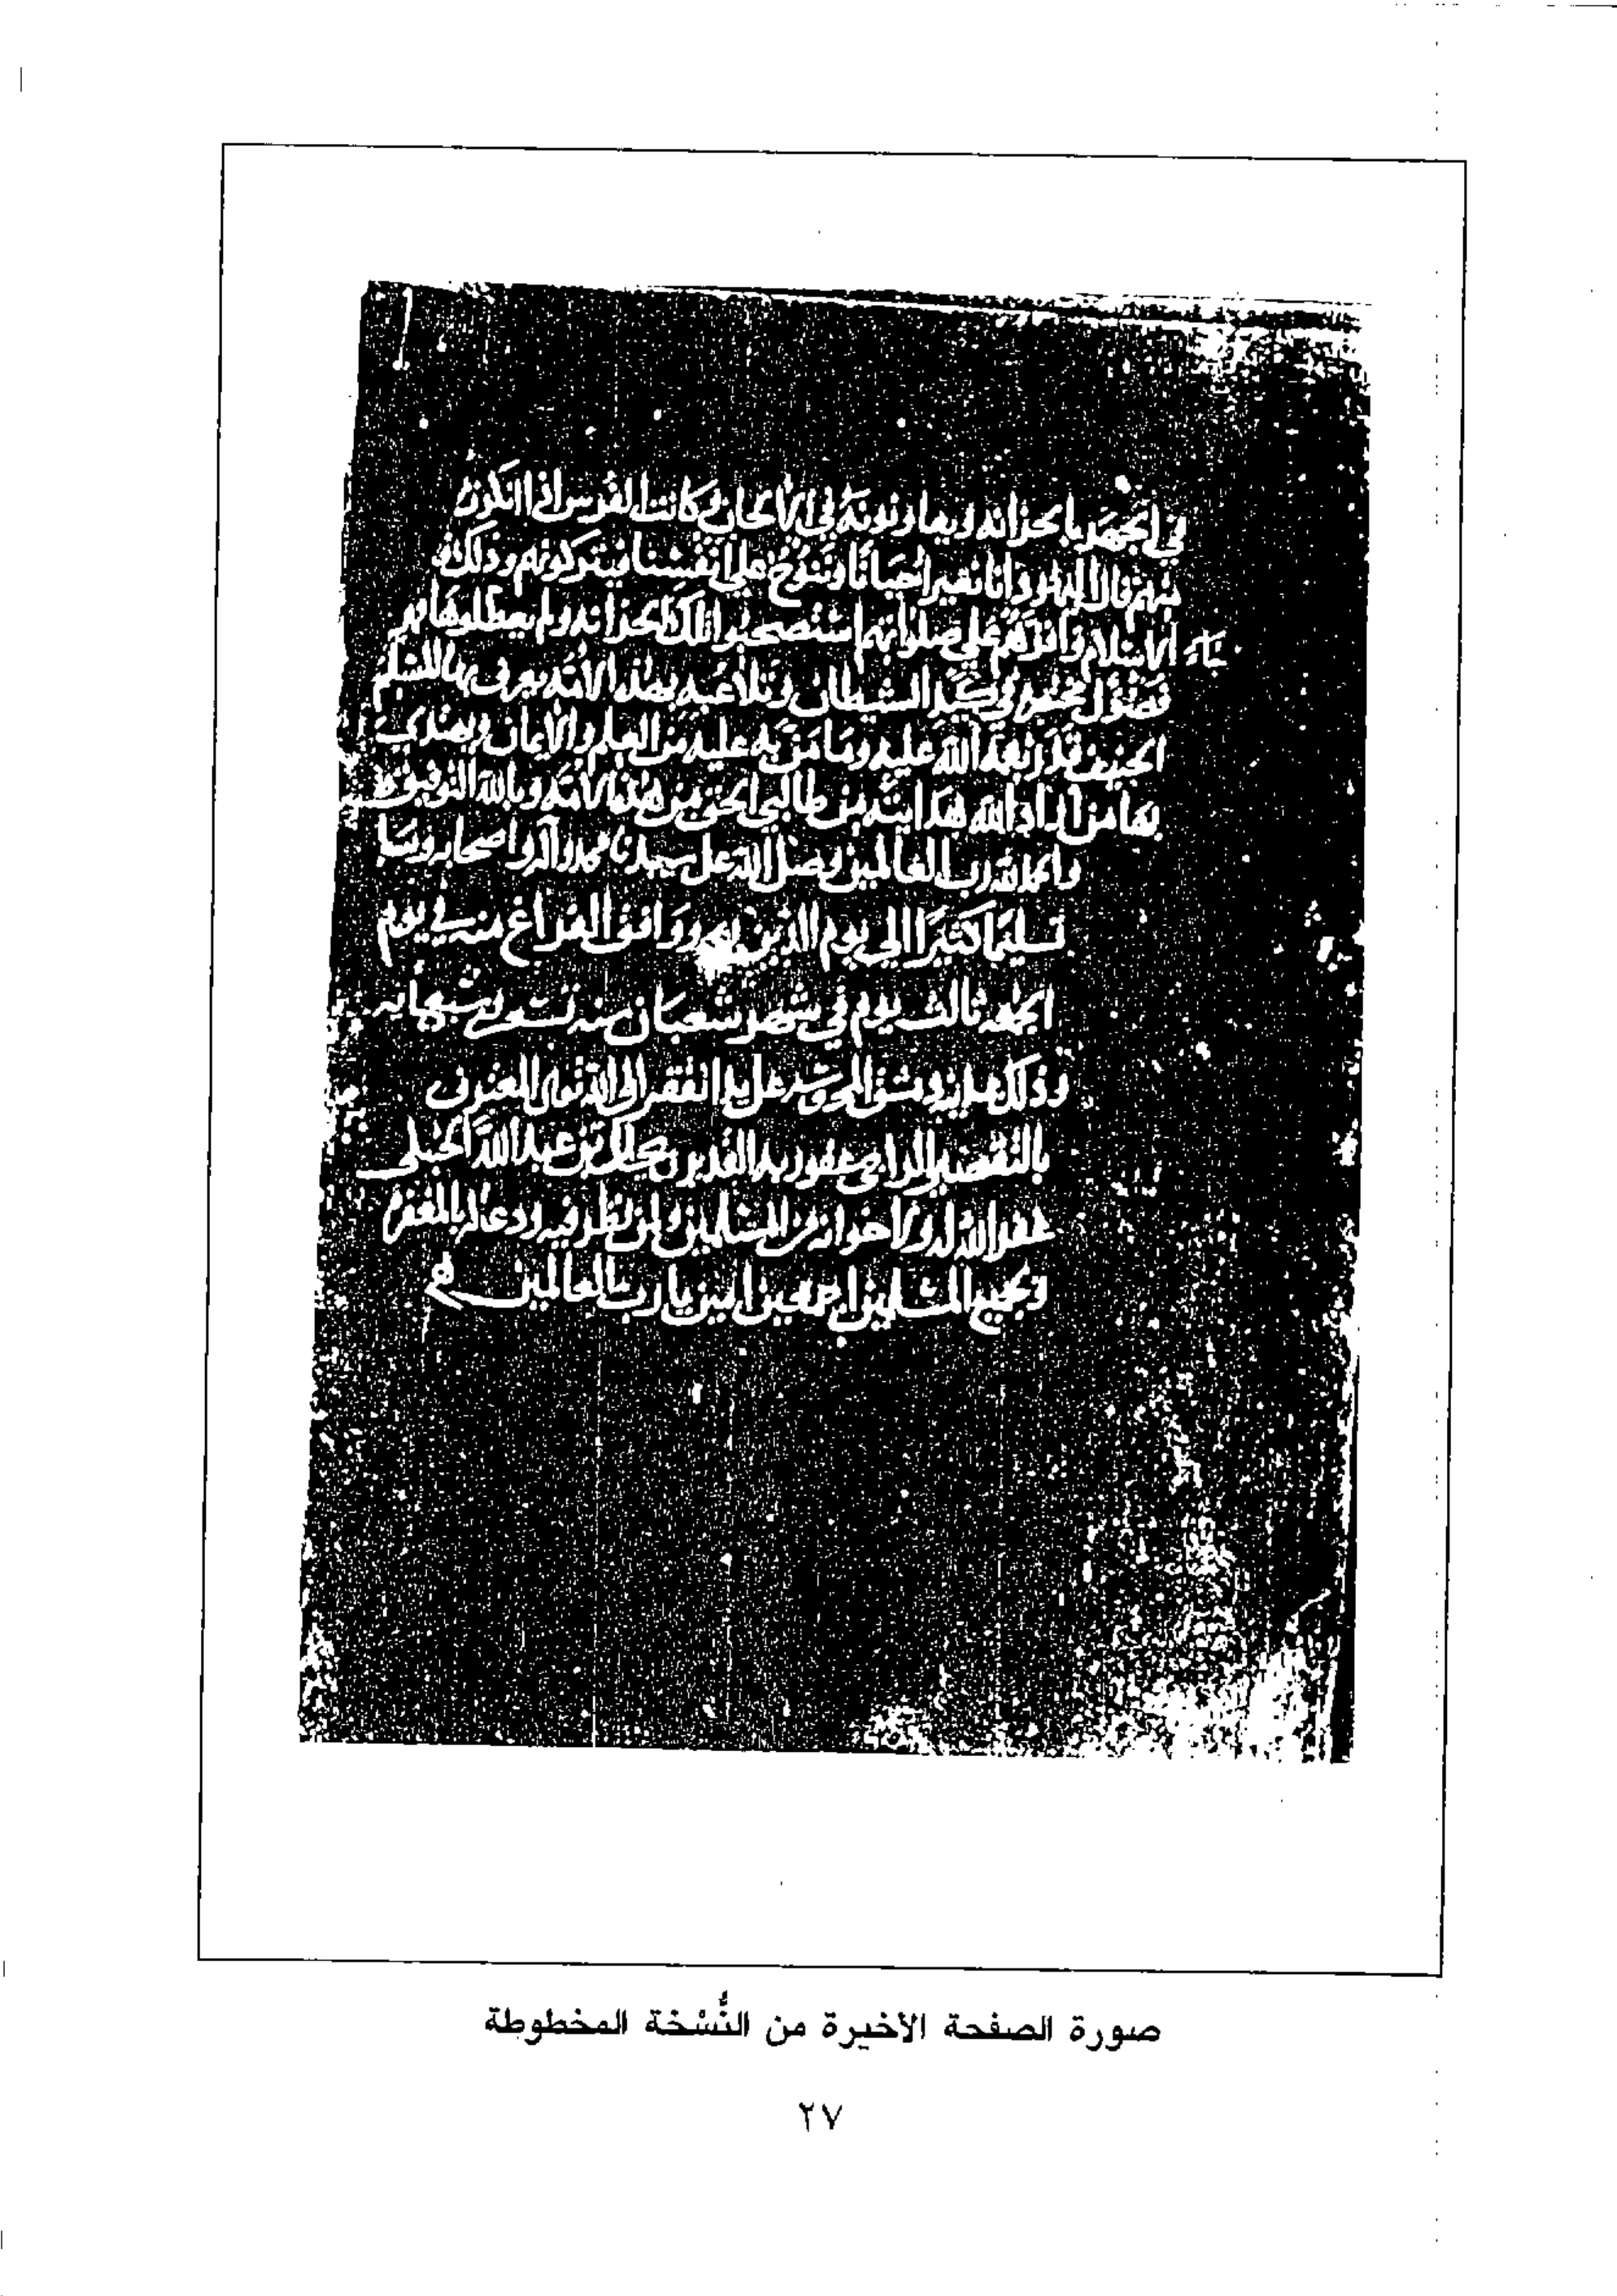 في الجهر بالحزانه وبعاونونه في الالحان وكانت الفرس اذا انكرت
منهم قال اليهود انا نغير احيانا وننوح على انفسنا فيتركونهم وذلك
الاسلام واقرهم على صلواتهم استصحبوا تلك الحزانه ولم يعطلوها
فصول في كيد الشيطان وتلاعبه بهذه الامه يعرف بها المسلم
الحنيف قدر نعمة الله عليه وما من به عليه من العلم والايمان ويهتدي
بها من اراد الله هدايته من طالبي الحق من هذه الامه وبالله التوفيق
والحمد لله رب العالمين وصلى الله على سيدنا محمد وآله واصحابه وسلم
تسليما كثيرا الى يوم الدين ووافق الفراغ منه في يوم
الجمعه ثالث يوم في شهر شعبان سنه
وذلك بمدينة دمشق المحروسه على يد الفقير الى الله تعالى المعترف
بالتقصير الراجي عفو ربه القدير بن عبد الله الحنبلي
غفر الله له ولاخوانه من المسلمين ولمن نظر فيه ودعا له بالمغفره
ولجميع المسلمين اجمعين امين يا رب العالمين
صورة الصفحة الأخيرة من النُّسْخة المخطوطة
٢٧